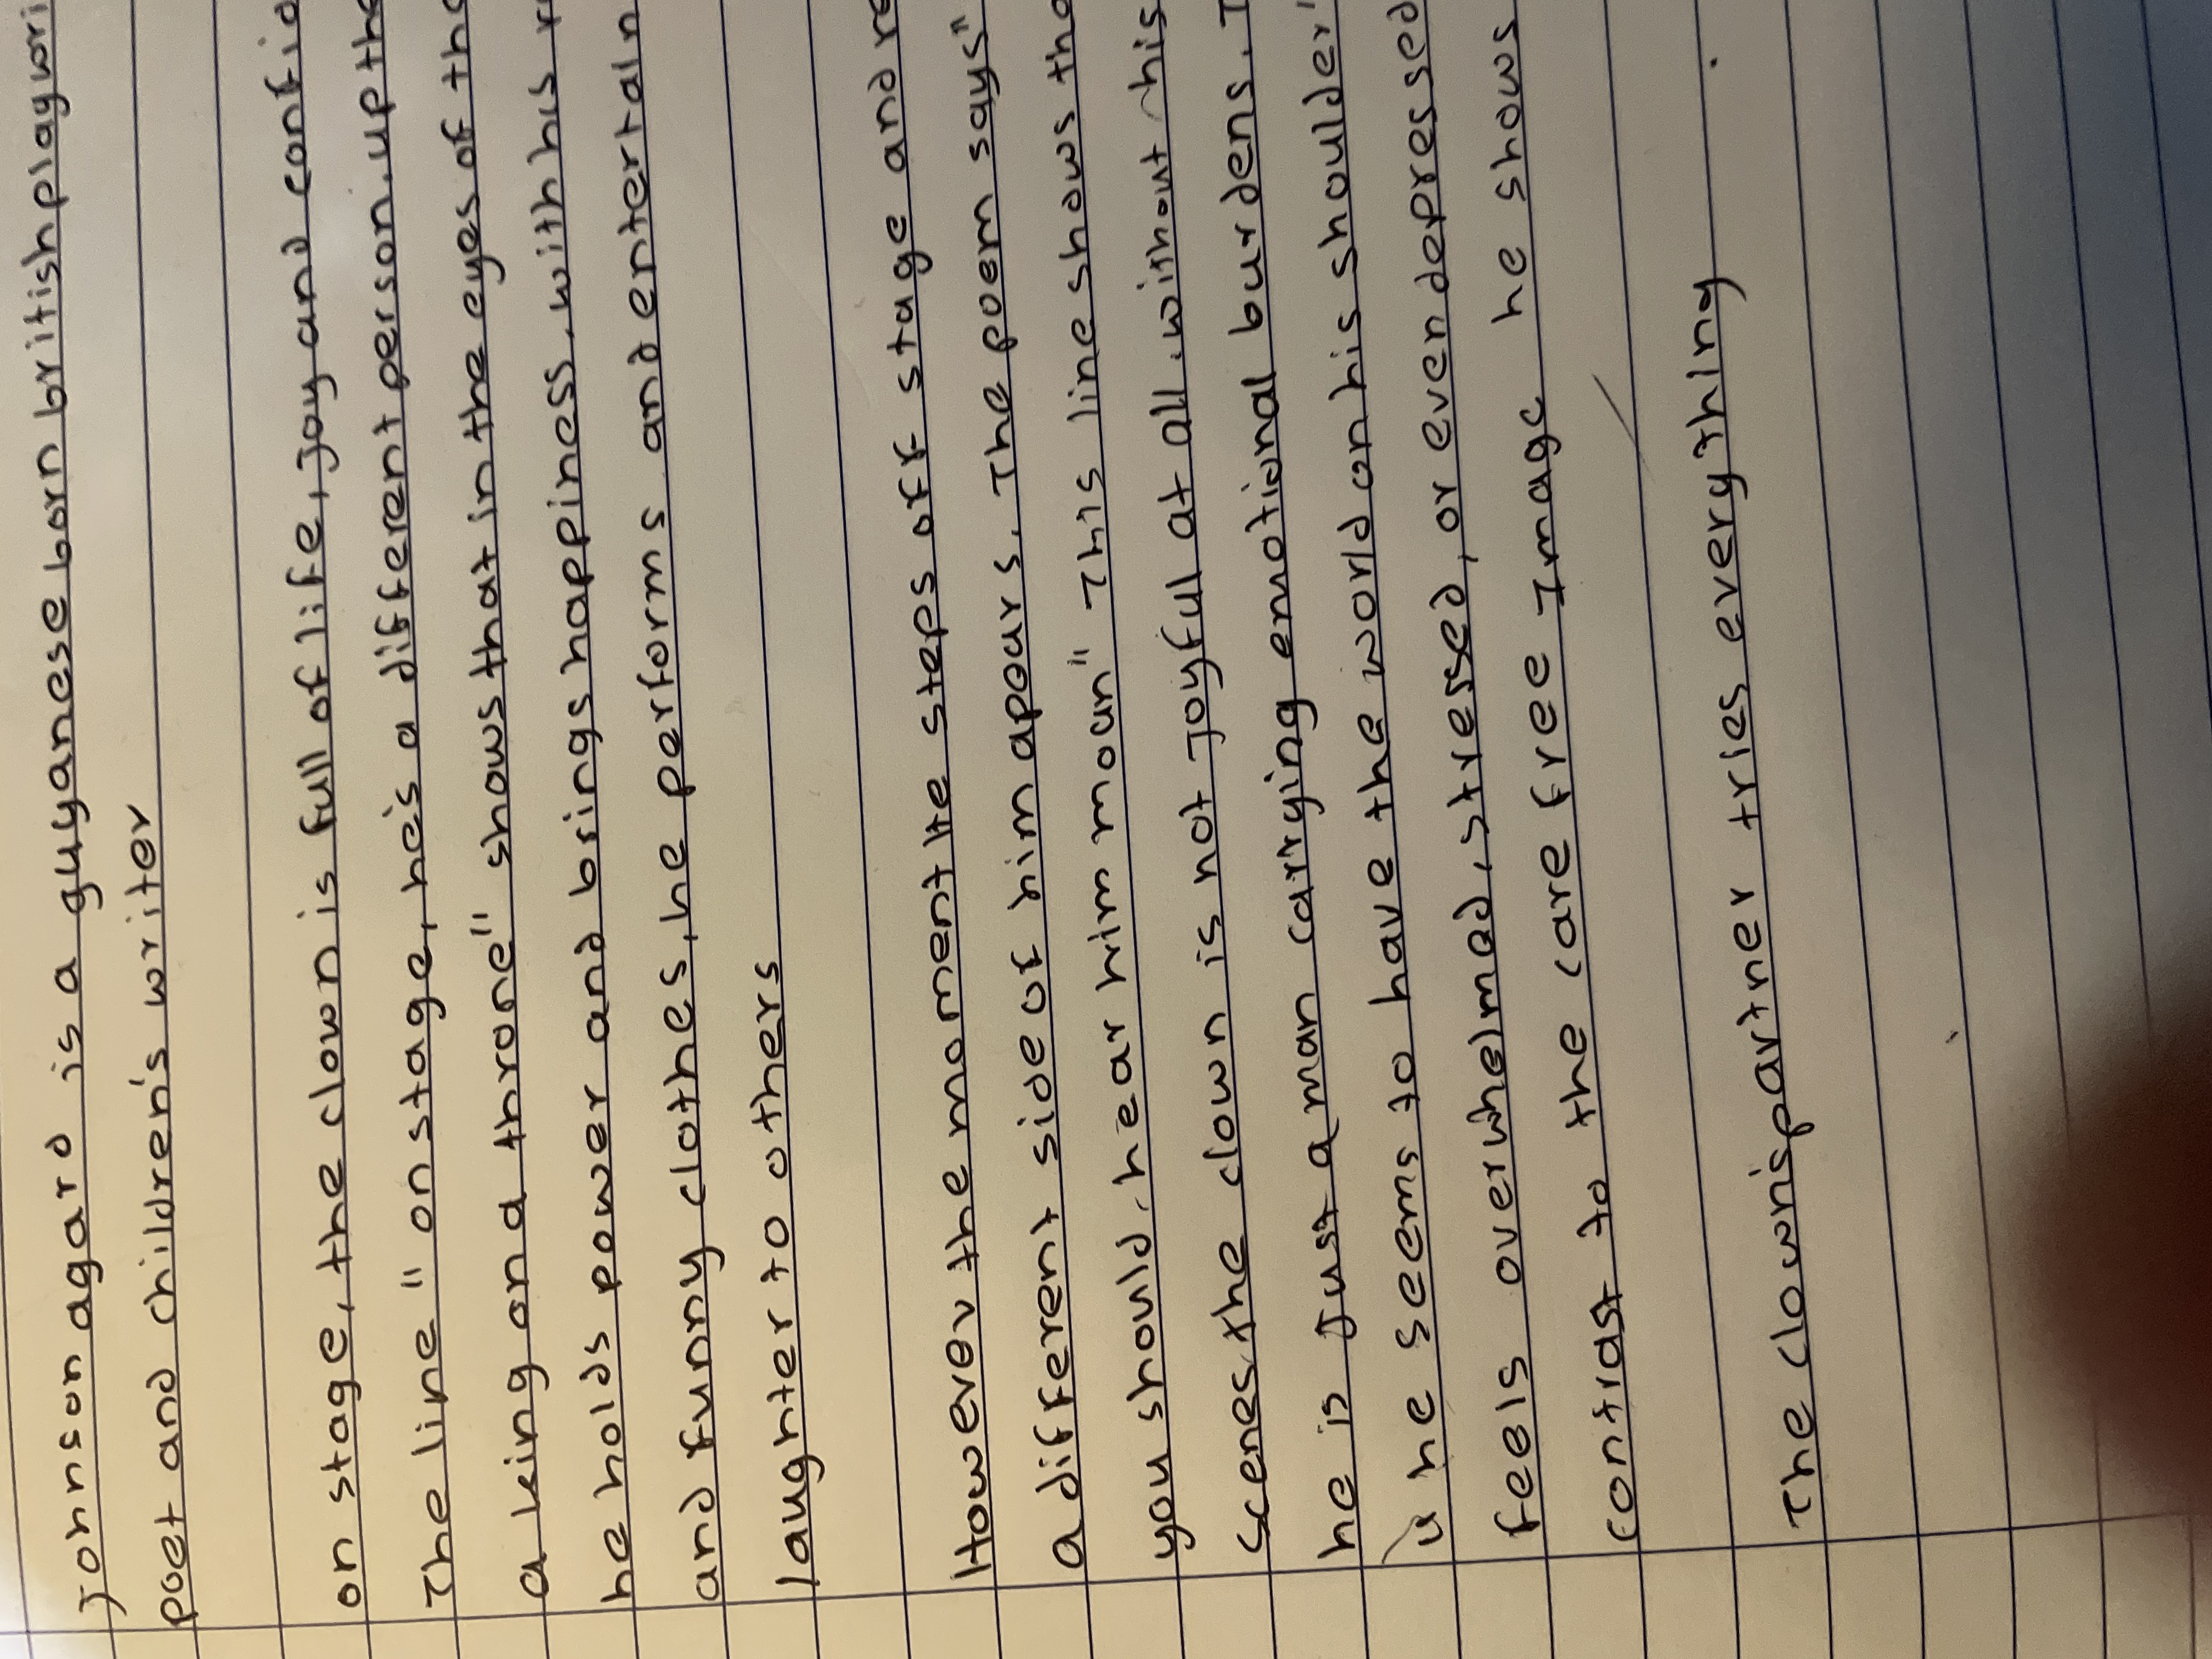 johnson agard is a guyanese born british playwri
poet and children's writer
on stage, the clown is full of life, joy and confid
The line " on stage, he's a different person. up the
a king on a throne" shows that in the eyes of the
he holds power and brings happiness. with his r
and funny clothes, he performs and entertain
laughter to others
However the moment He steps off stage and re
a different side of him apears. The poem says"
you should hear him moan" This line shows tha
scenes the clown is not joyful at all. without his
he is just a man carrying emotional burdens. I
he seems to have the world on his shoulder'
feels overwhelmed, stressed, or even depressed
contrast to the care free Image he shows
The clown's partner tries everything